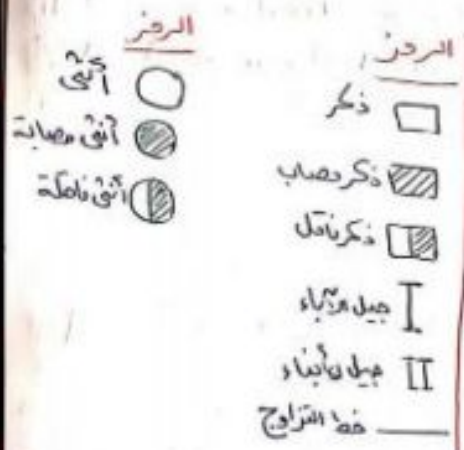 الرمز
ذكر
ذكر مصاب
ذكر ناقل
I جيل الآباء
II جيل الأبناء
خط التزاوج
الرمز
أنثى
أنثى مصابة
أنثى ناقلة